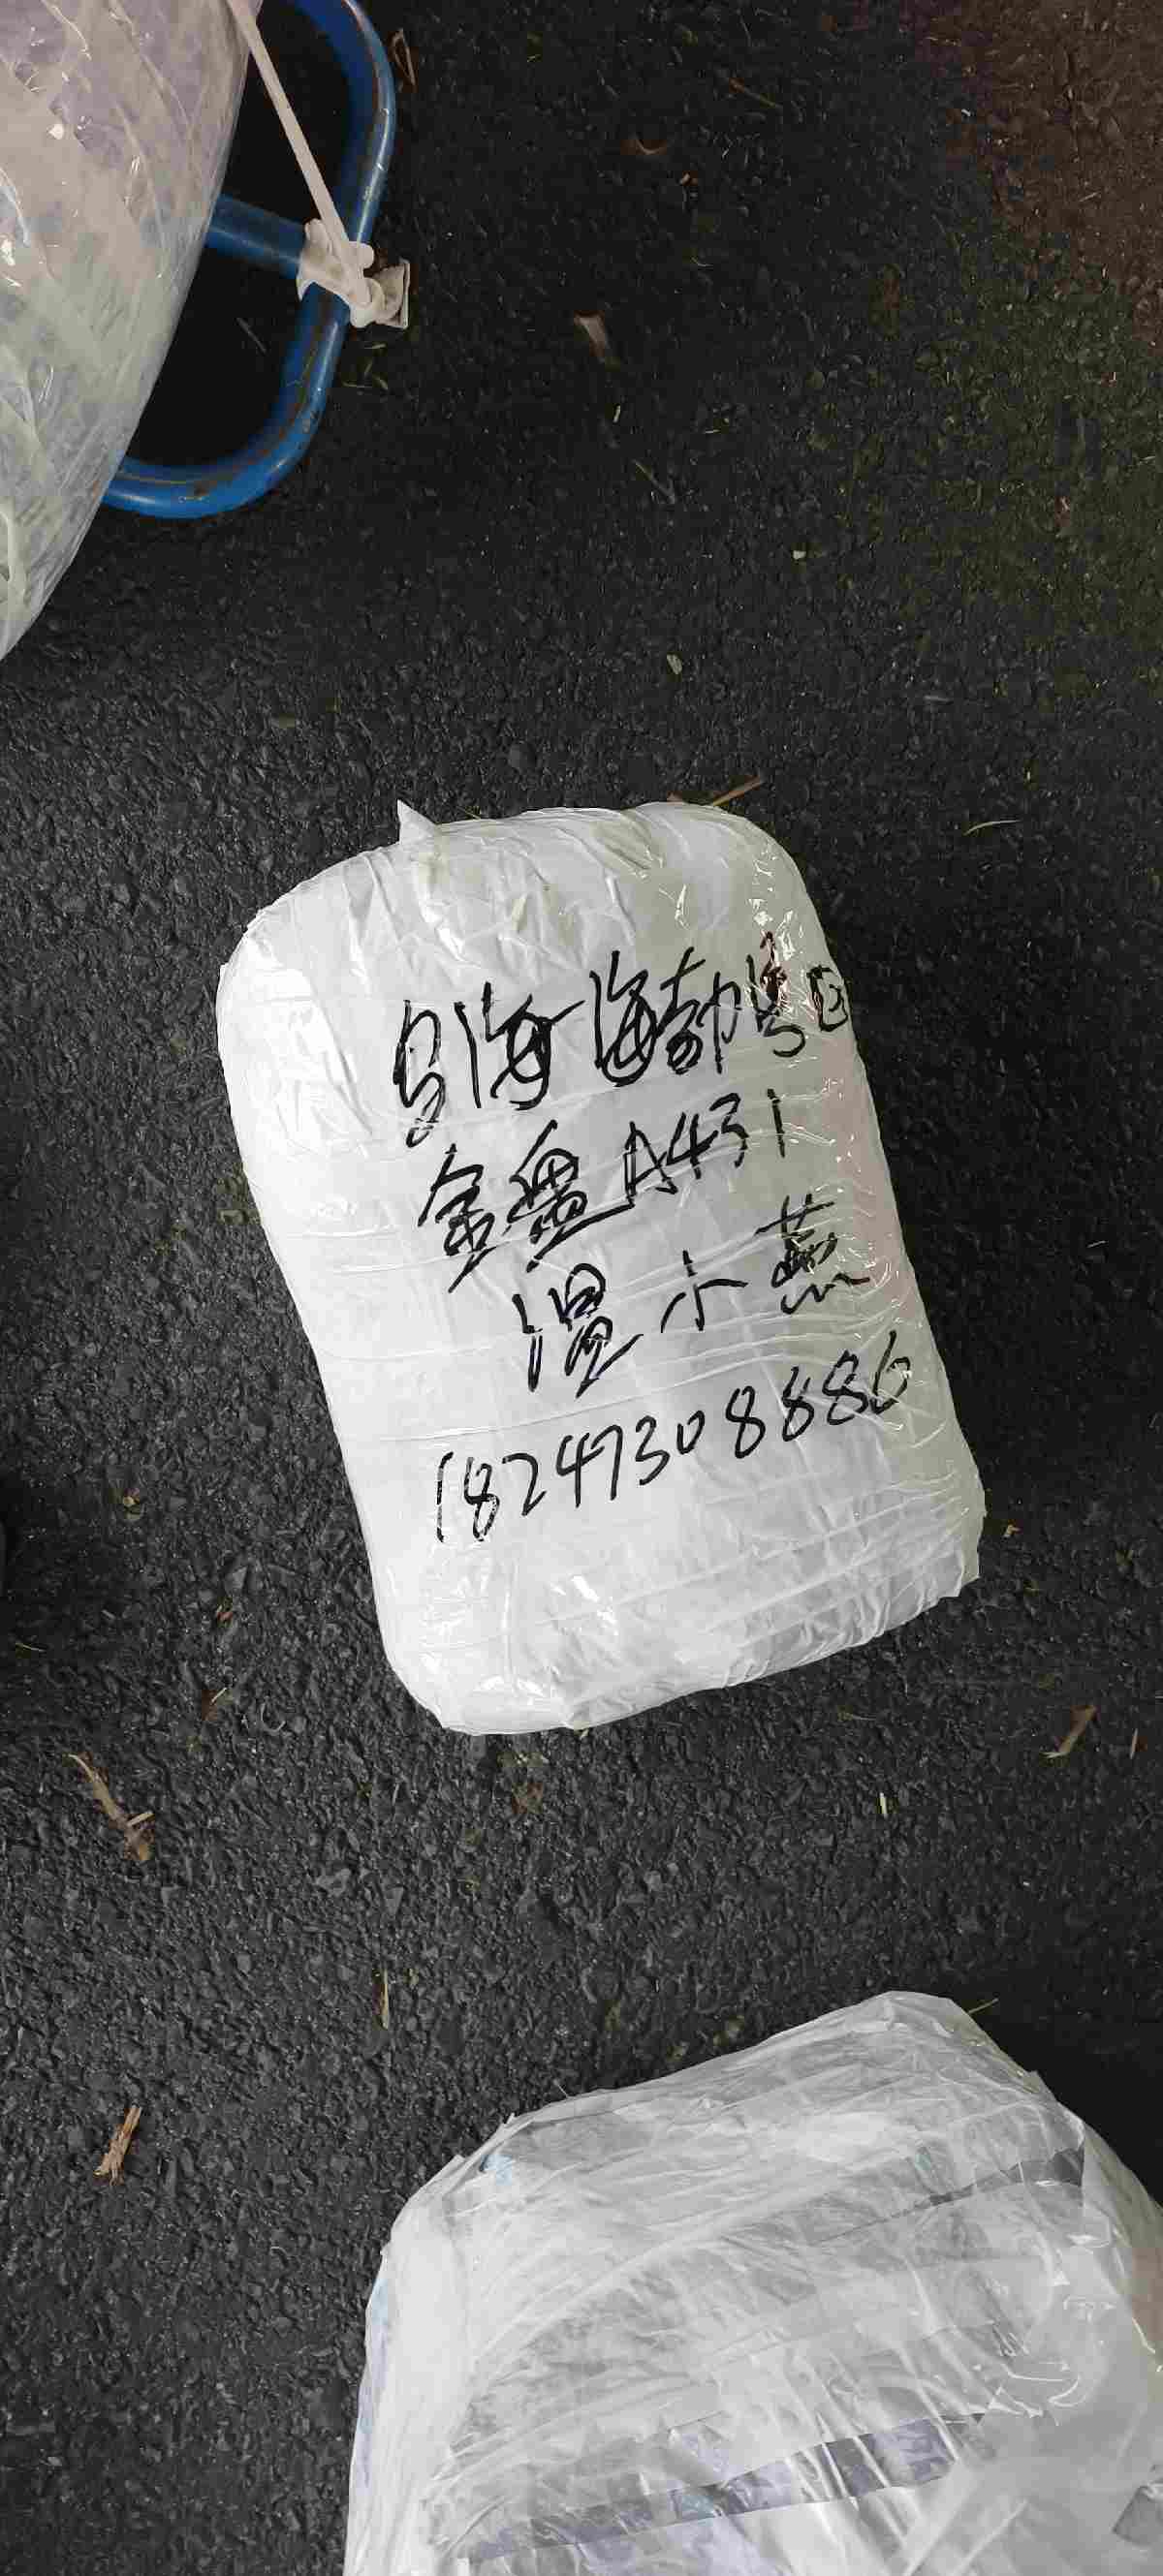 乌海海勃湾区
金盘A431
温小燕
18247308886